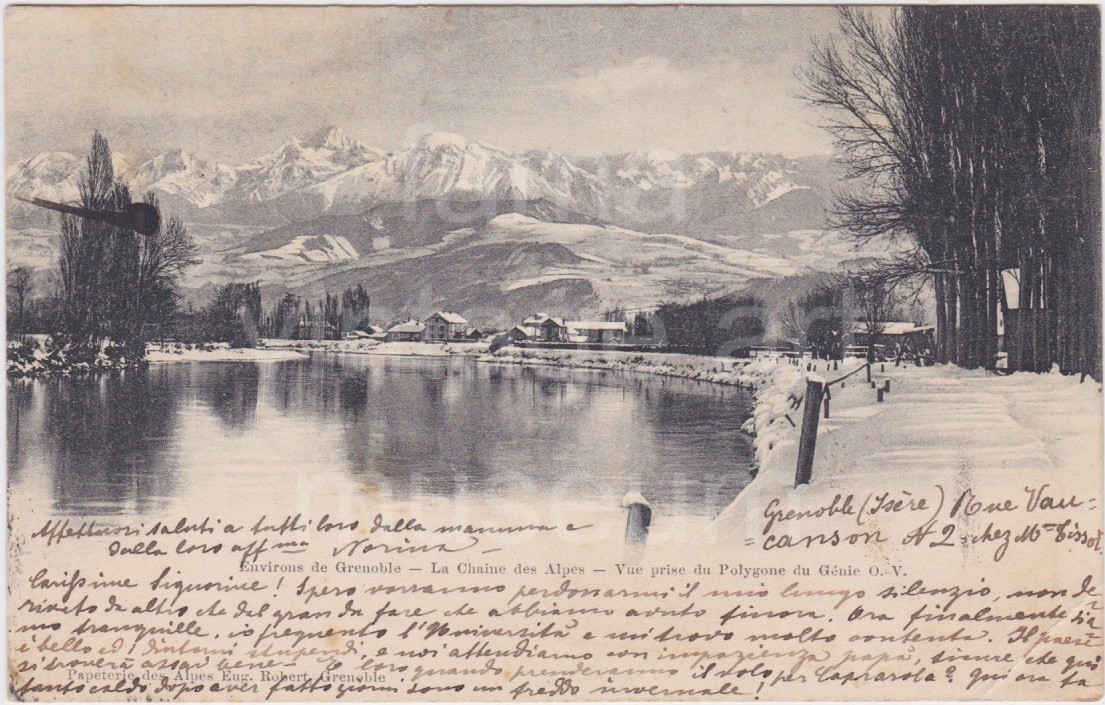 fauna
vintage ad
museum
Affettuosi saluti a tutti loro dalla mamma e
dalla loro affma Norina —
Grenoble (Isère) Rue Vau=
=canson N 2 - chez Me Tissot
Environs de Grenoble — La Chaine des Alpes — Vue prise du Polygone du Génie O. V.
Carissime Signorine! Spero vorranno perdonarmi il mio lungo silenzio, non de=
rivato da altro che dal gran da fare che abbiamo avuto finora. Ora finalmente sia=
mo tranquille, io frequento l'Università e mi trovo molto contenta. Il paese
è bello ed i dintorni stupendi, e noi attendiamo con impazienza papà, sicure che qui
si troverà assai bene — E loro quando prenderanno il volo per Caprarola? qui ora fa
Papeterie des Alpes Eug. Robert, Grenoble
tanto caldo dopo aver fatto giorni sono un freddo invernale!